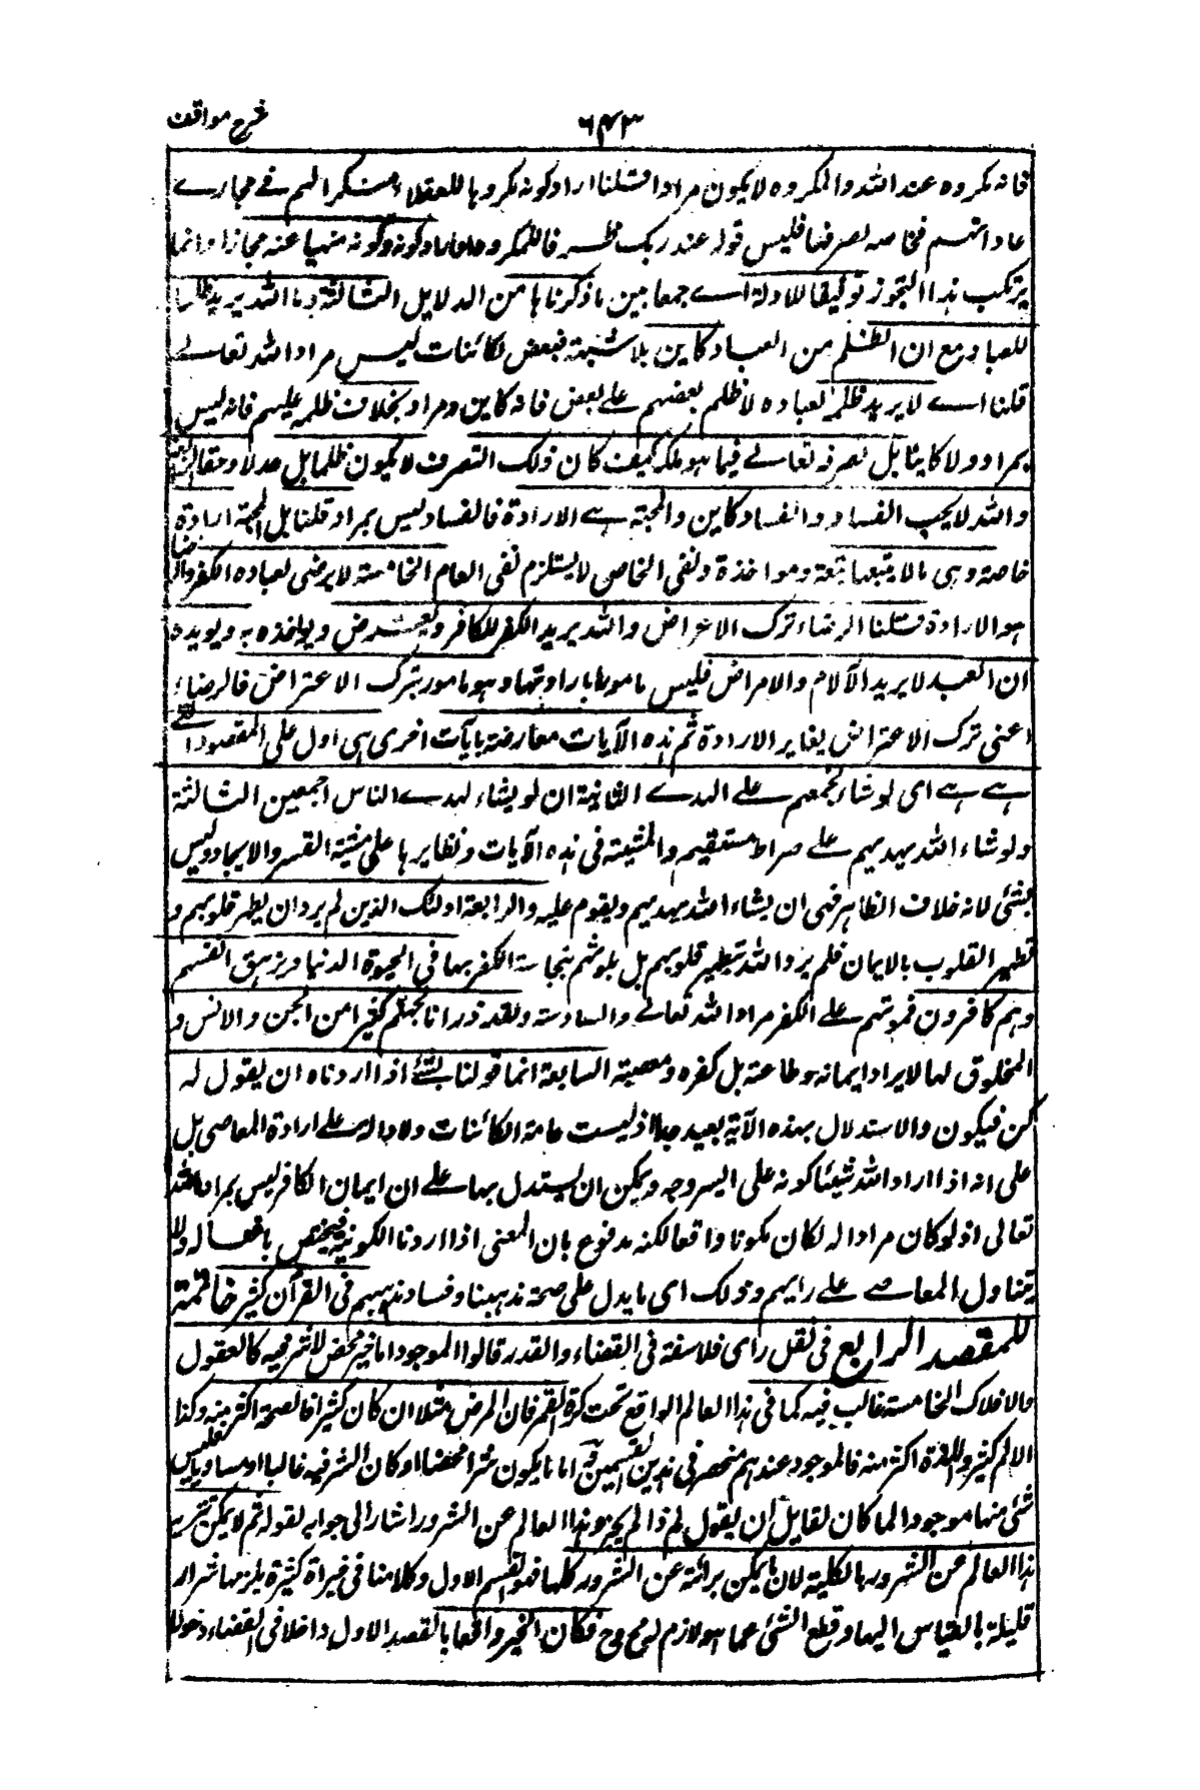 شرح مواقف
٦٤٣
فانه مكروه عند الله والمكروه لا يكون مرادا قلنا اراد كونه مكروها للعقلاء منكرا لهم في مجاري
عاداتهم لمصرفها فليس قوله عند ربك فالمكروه وكونه منهيا عنه مجازا وانما
يرتكب هذا التجوز توفيقا للادلة اي جمعا بين ما ذكرناها من الدلايل الثالثة وما الله يريد ظلما
للعباد مع ان الظلم من العباد كاين بلا شبهة فبعض الكائنات ليس مرادا لله تعالى
قلنا اي لا يريد ظلمه لعباده لا ظلم بعضهم على بعض فانه كاين ومراد بخلاف ظلمه عليهم فانه ليس
بمراد ولا كاينا بل تصرفه تعالى فيما هو ملكه كيف كان ذلك التصرف لا يكون ظلما بل عدلا وحقا
والله لا يحب الفساد والفساد كاين والمحبة هي الارادة فالفساد ليس بمراد قلنا بل المحبة ارادة
خاصة وهي ما لا يتبعها تبعة ومواخذة ونفى الخاص لا يستلزم نفى العام الخامسة لا يرضى لعباده الكفر والرضا
هو الارادة قلنا الرضاء ترك الاعتراض والله يريد الكفر للكافر ويعترض ويواخذه به ويويده
ان العبد لا يريد الآلام والامراض فليس مامورا بارادتها وهو مامور بترك الاعتراض فالرضاء
اعنى ترك الاعتراض يغاير الارادة ثم هذه الآيات معارضة بآيات اخرى هى ادل على المقصود الاولى
اي لو شاء لجمعهم على الهدى الثانية ان لو يشاء لهدى الناس اجمعين الثالثة
ولو شاء الله يهديهم على صراط مستقيم والمشيئة فى هذه الآيات ونظايرها على مشية القسر والايجاد وليس
بشئ لانه خلاف الظاهر فهى ان يشاء الله يهديهم ويقوم عليه والرابعة اولئك الذين لم يرد ان يطهر قلوبهم و
تطهير القلوب بالايمان فلم يرد الله تطهير قلوبهم بل بلوثهم بنجاسة الكفر بها فى الحيوة الدنيا وتزهق انفسهم
وهم كافرون فموتهم على الكفر مراد الله تعالى والسادسة ولقد ذرانا لجهنم كثيرا من الجن والانس و
المخلوق لها لا يراد ايمانه وطاعته بل كفره ومعصيته السابعة انما قولنا لشئ اذا اردناه ان يقول له
كن فيكون والاستدلال بهذه الآية بعيد جدا اذ ليست عامة الكائنات ولا دالة على ارادة المعاصى بل
على انه اذا اراد الله شيئا كونه على ايسر وجه ويمكن ان يستدل بها على ان ايمان الكافر ليس بمراد الله
تعالى اذ لو كان مرادا له لكان مكونا واقعا لكنه مدفوع بان المعنى اذا اردنا الكونية فيختص بافعاله ولا
يتناول المعاصى على رايهم وذلك اى ما يدل على صحة مذهبنا وفساد مذهبهم فى القرآن كثير خاتمة
للمقصد الرابع فى نقل راى فلاسفة فى القضاء والقدر قالوا الموجود اما خير محض لا شر فيه كالعقول
والافلاك الخامسة غالب فيه كما فى هذا العالم الواقع تحت كرة القمر فان المرض مثلا ان كان كثيرا فالصحة اكثر منه وكذا
الالم كثير واللذة اكثر منه فالموجود عندهم منحصر فى هذين القسمين اما ما يكون شرا محضا او كان الشر فيه غالبا او مساويا فليس
شئ منها موجودا لما كان لقايل ان يقول لم ذا لم يجرد هذا العالم عن الشرور اشار الى جوابه بقوله ثم لا يمكن تنزيه
هذا العالم من الشرور بالكلية لان ما يمكن برائته عن الشرور كلها فهو القسم الاول وكلامنا فى خيراة كثيرة يلزمها شرار
قليلة بالقياس اليها وقطع الشئ عما هو لازم له محال وح فكان الخير واقعا بالقصد الاول داخلا فى القضاء دخولا